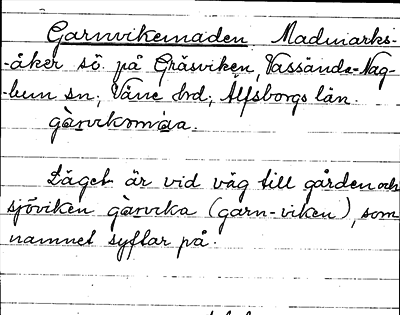 Garnvikemaden Madmarks-
-åker sö. på Gräsviken, Vassända-Nag-
-lum sn, Väne hd, Älfsborgs län.
Läget är vid väg till gården och
sjöviken gàrvika (garn-viken), som
namnet syftar på.